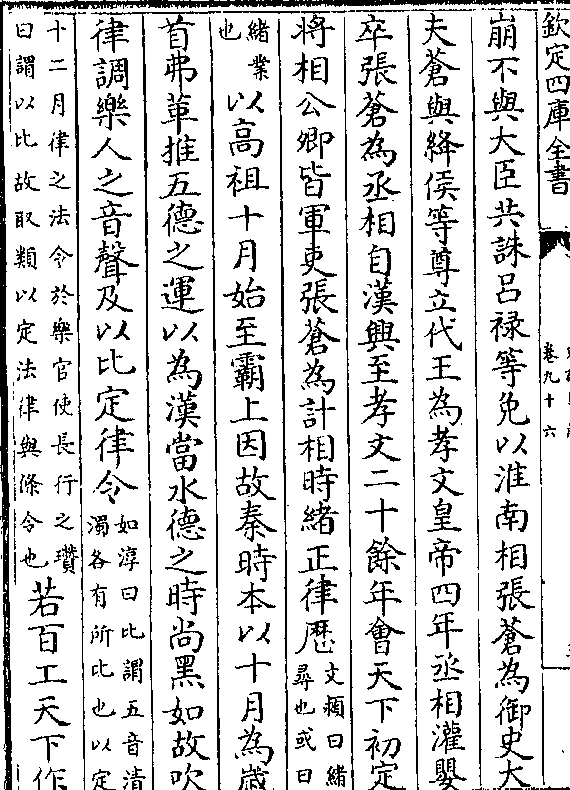 欽定四庫全書
卷九十六
崩不與大臣共誅吕禄等免以淮南相張蒼為御史大
夫蒼與絳侯等尊立代王為孝文皇帝四年丞相灌嬰
卒張蒼為丞相自漢興至孝文二十餘年會天下初定
將相公卿皆軍吏張蒼為計相時緒正律厯
文頴曰緒
尋也或曰
緒業
也
以高祖十月始至霸上因故秦時本以十月為歳
首弗革推五德之運以為漢當水德之時尚黑如故吹
律調樂人之音聲及以比定律令
如淳曰比謂五音清
濁各有所比也以定
十二月律之法令於樂官使長行之瓚
曰謂以比故取類以定法律與條令也
若百工天下作